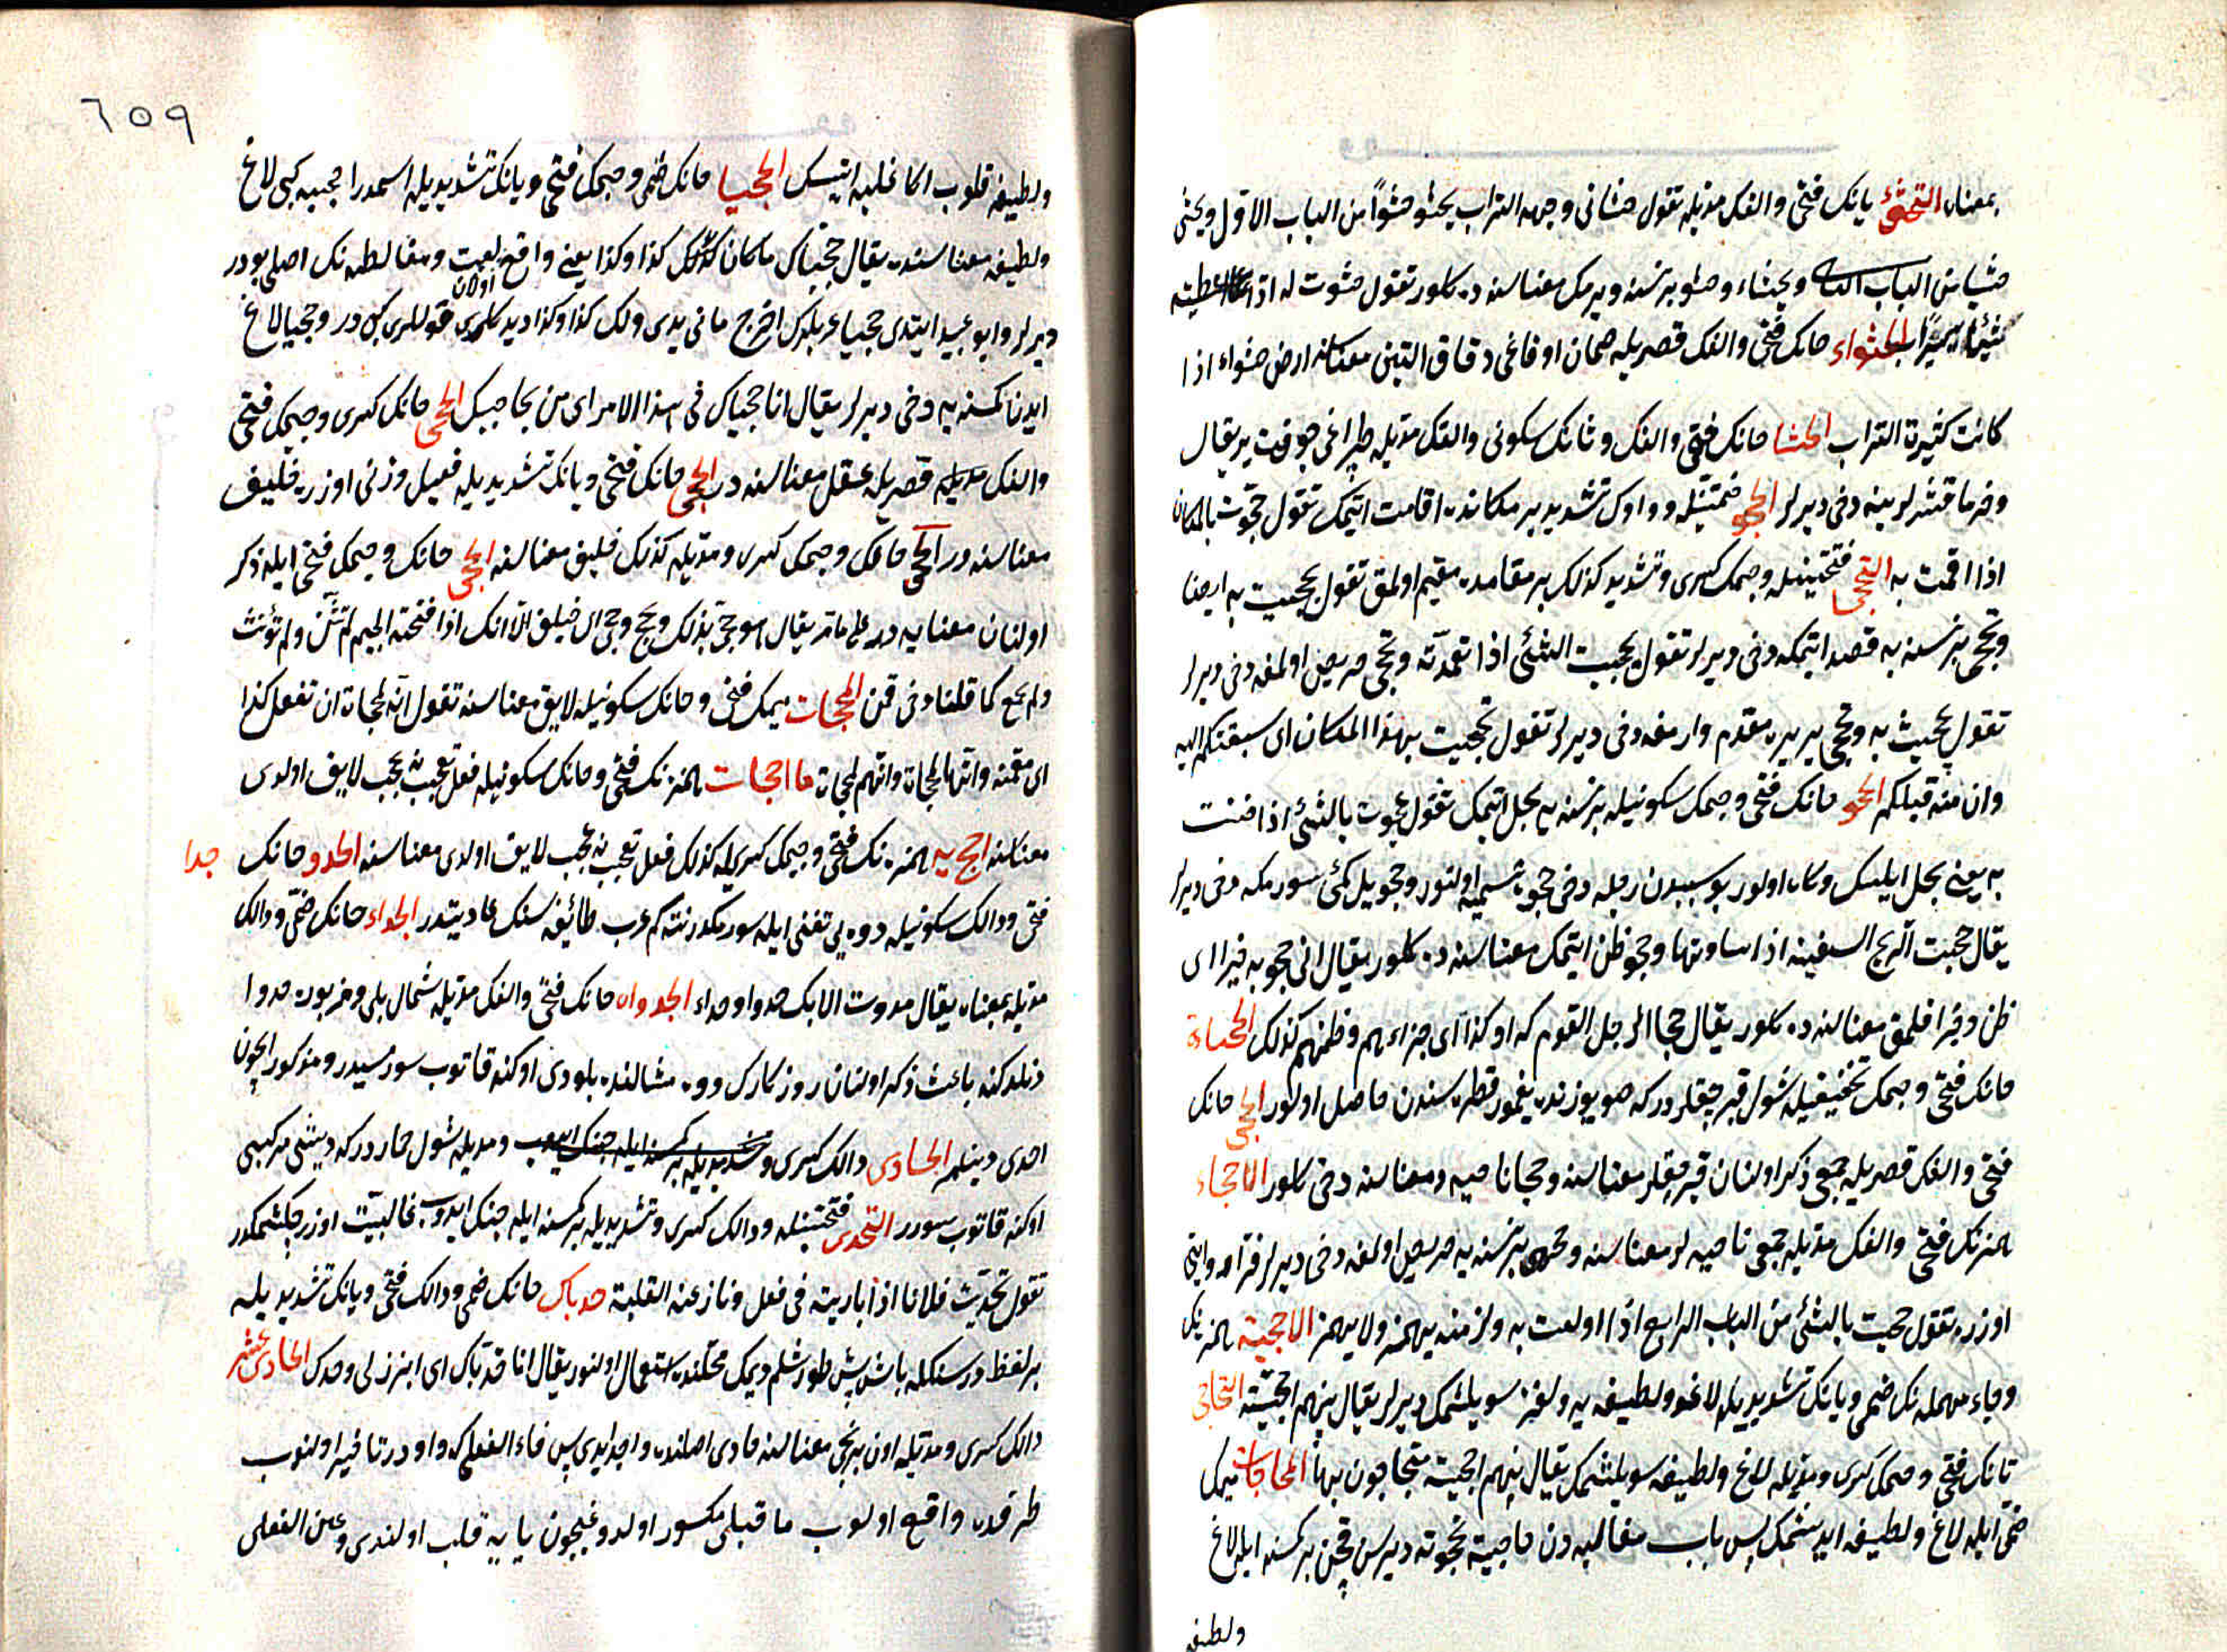 بمعناه التحثى يانك فتحى والفك مديله تقول حثانى وجهه التراب يحثو حثواً من الباب الاول ويحثى
حثيا من الباب الثانى ويحثاء وحثو بر نسنه ويرمك معناسنده كلور تقول حثوت له اذا اعطيته
شيئا يسيرا الحثواء حانك فتحى والفك قصريله صمان اوفاغى دقاق التبن معناسنه ارض حثواء اذا
كانت كثيرة التراب الحثا حانك فتحى والفك وثانك سكونى والفك مديله طپراغى چوق يره يقال
وخرما قشرلرينه دخى ديرلر الحجو فتحتينله وواوك تشديد بر مكانده اقامت ايتمك تقول حجوت بالمكان
اذا اقمت به التحجى فتحتينله وجيمك كسرى وتشديد كذلك بر مقامده مقيم اولمق تقول تحجيت به ايضا
وتحجى بر نسنه به قصد ايتمكه دخى ديرلر تقول تحجيت الشئ اذا تعمدته وتحجى حريص اولمغه دخى ديرلر
تقول تحجيت به وتحجى بر يره مقدم وارمغه دخى ديرلر تقول تحجيت بهذا المكان اى سبقتكم اليه
وان منه قبلكم الحجو حانك فتحى وجيمك سكونيله بر نسنه يه بخل ايتمك تقول حجوت بالشئ اذا ضننت
به يعنى بخل ايلسك وكاه اولور بو سببدن رجله دخى حجوة تسميه اولنور وحجو يل كمئى سورمكه دخى ديرلر
يقال حجت الريح السفينة اذا ساقتها وحجو ظن ايتمك معناسنه ده كلور يقال انى حجو به خيرا اى
ظن وخيرا قلمق معناسنه ده كلور يقال حجا الرجل القوم كذا وكذا اى جزاءهم وظنهم كذلك الحجاة
حانك فتحى وجيمك تخفيفيله شول قبرجقلردر كه صو يوزنده يغمور قطره سندن حاصل اولور الحجى حانك
فتحى والفك قصريله جمعى ذكر اولنان قبرجقلر معناسنه وحجانا حيه ومعناسنه دخى كلور الاحجاء
همزنك فتحى والفك مديله جمعى ناحيه لر معناسنه وحجى بر نسنه يه حريص اولمغه دخى ديرلر
اوزره تقول حجيت بالشئ من الباب الرابع اذا اولعت به ولزمته يهمز ولا يهمز الاحجية همزنك
وحاء مهمله نك ضمى ويانك تشديديله لاغو ولطيفه يه ولغز سويلشمك ديرلر يقال بينهم احجية التحاجى
تانك فتحى وجيمك كسرى ومديله لاغ ولطيفه سويلشمك يقال بينهم احجية يتحاجون بها المحاجات ميمك
ضمى ايله لاغ ولطيفه ايدشمك پس باب مغالبه دن حاجيته فحجوته ديرسن قچن بر كمسنه ايله لاغ
ولطيفه
٦٥٩
ولطيفه قلوب اكا غلبه ايتسك الحجيا حانك ضمى وجيمك فتحى ويانك تشديديله اسمدر احجيه كبى لاغ
ولطيفه معناسنه يقال حجياك ما كان كذا وكذا يعنى واقع اولان لعبت ومغالطه نك اصلى بودر
ديرلر وابو عبيد ايتدى حجيا عربلرك اخرج ما فى يدى ولك كذا وكذا ديدكلرى قوللرى كبى در وحجيا لاغ
ايدن كمسنه يه دخى ديرلر يقال انا حجياك فى هذا الامر اى من يحاجيك الحجى حانك كسرى وجيمك فتحى
والفك قصريله عقل معناسنه در الحجى حانك فتحى ويانك تشديديله فعيل وزنى اوزره خليق
معناسنه در الحجى حانك وجيمك كسرى ومديله كذلك خليق معناسنه الحجى حانك وجيمك فتحى ايله ذكر
اولنان معنايه در على ما مر يقال هو حج بذلك وحجى اى خليق الا انك اذا فتحت الجيم لم تثن ولم تؤنث
ولم تجمع كما قلنا فى قمن المحجات ميمك فتحى وحانك سكونيله لايق معناسنه تقول انه لمحجاة ان تفعل كذا
اى مقمنة وانها لمحجاة وانهم لمحجاة ما احجات همزنك فتحى وحانك سكونيله فعل تعجب نه عجب لايق اولدى
معناسنه احج به همزه نك فتحى وجيمك كسريله كذلك فعل تعجب نه عجب لايق اولدى معناسنه الحدو حانك حدا
فتحى ودالك سكونيله دوه يى تغنى ايله سورمكدر نته كم عرب طائفه سنك عادتيدر الحداء حانك ضمى ودالك
مديله بمعناه يقال حدوت الابل حدوا وحداء الحدواء حانك فتحى والفك مديله شمال يلى ومزبوره حدوا
ديملكنه باعث ذكر اولنان روزكارك دوه مثالنده بلودى اوكنه قاتوب سورمسيدر ومذكور ايچون
احدى دينلمز الحادى دالك كسرى ومديله شول حاردر كه ديشى مركبى
اوكنه قاتوب سورر التحدى فتحتينله ودالك كسرى وتشديديله بر كمسنه ايله جنك ايدوب غالبيت اوزره چكشمكدر
تقول تحديت فلانا اذا باريته فى فعل ونازعته الغلبة حدياك حانك ضمى ودالك فتحى ويانك تشديديله
بر لفظدر سنكله باش پش طورشلم ديمك محلنده استعمال اولنور يقال انا حدياك اى ابرز لى وحدك الحادى عشر
دالك كسرى ومديله اون برنجى معناسنه حادى اصلنده واحد ايدى پس فاء الفعلى كه واودر تأخير اولنوب
طرفده واقع اولوب ما قبلى مكسور اولدوغيچون يايه قلب اولندى وعين الفعلى